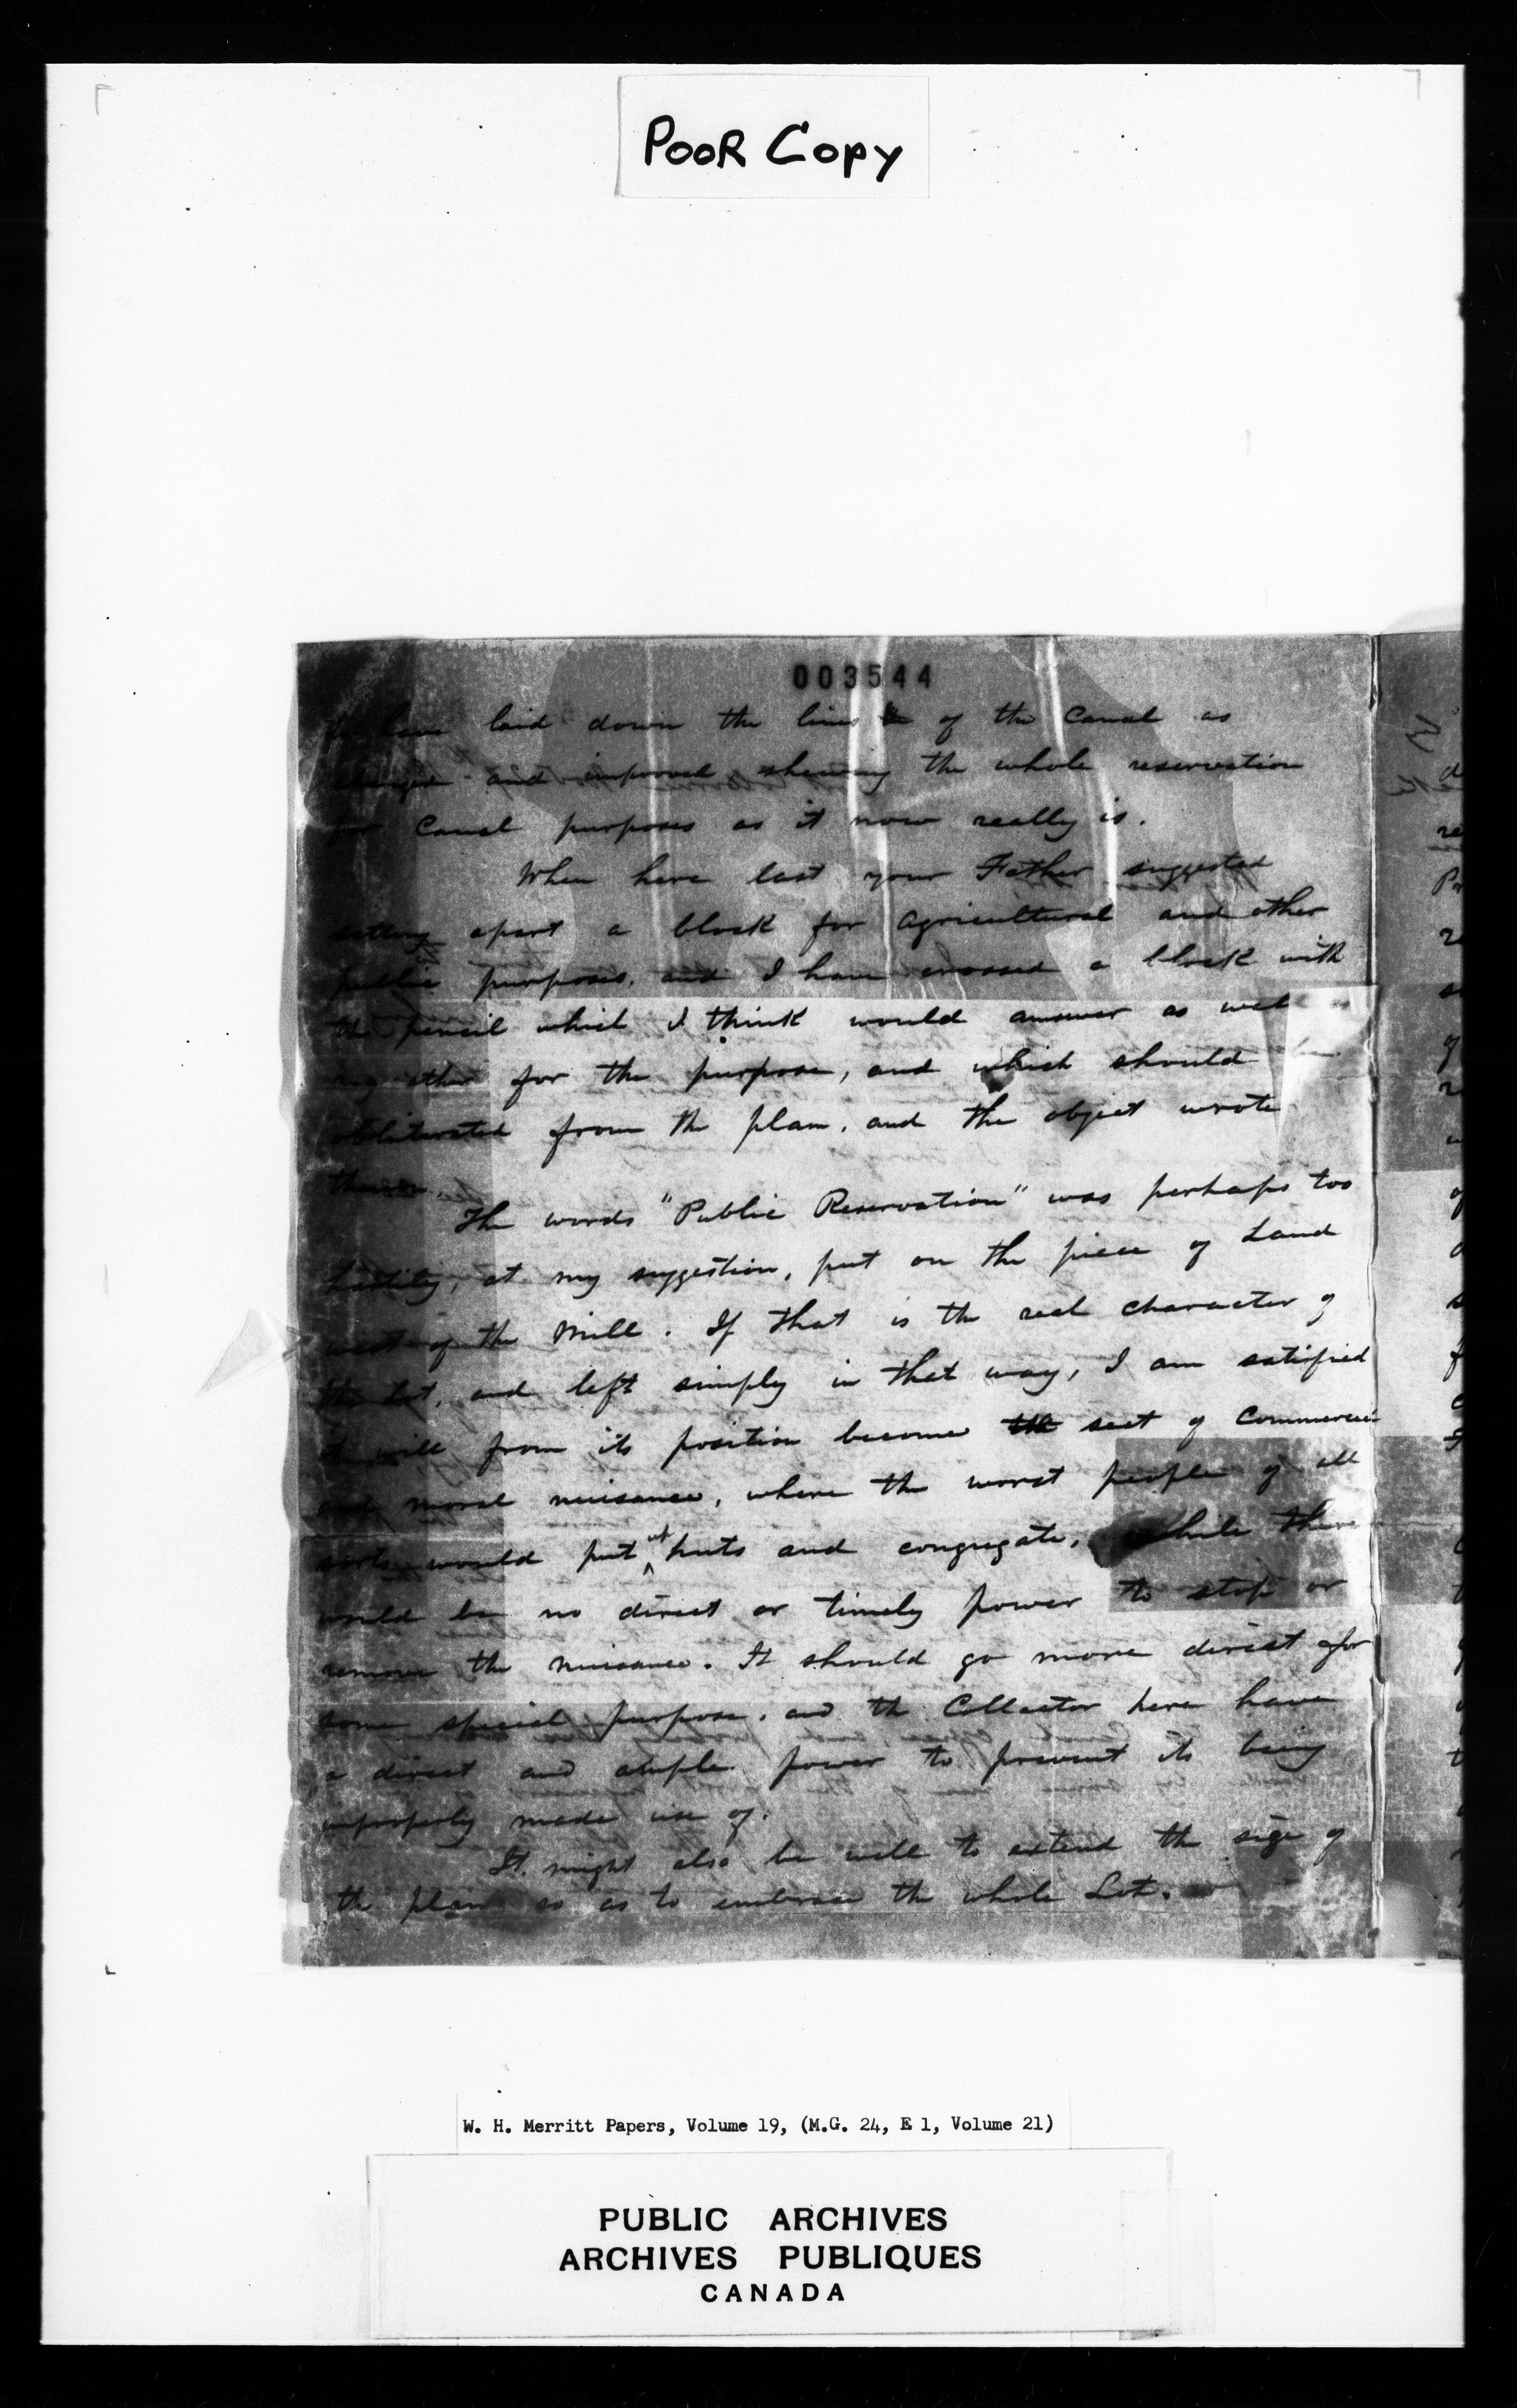 POOR COPY
003544
to have laid down the lines of the Canal as
changed and improved, shewing the whole reservation
for Canal purposes as it now really is.
When here last your Father suggested
setting apart a block for Agricultural and other
public purposes, and I have crossed a block with
the pencil which I think would answer as well as
any other for the purpose, and which should be
obliterated from the plan, and the object wrote
thereon.
The words "Public Reservation" was perhaps too
hastily, at my suggestion, put on the piece of Land
west of the Mill. If that is the real character of
the Lot, and left simply in that way, I am satisfied
it will from its position become the seat of Commercial
and moral nuisance, where the worst people of all
sorts would put up huts and congregate, while there
would be no direct or timely power to stop or
remove the nuisance. It should go more direct for
some special purpose, and the Collector here have
a direct and ample power to prevent its being
improperly made use of.
It might also be well to extend the size of
the plan so as to embrace the whole Lot.
W. H. Merritt Papers, Volume 19, (M.G. 24, E 1, Volume 21)
PUBLIC ARCHIVES
ARCHIVES PUBLIQUES
CANADA